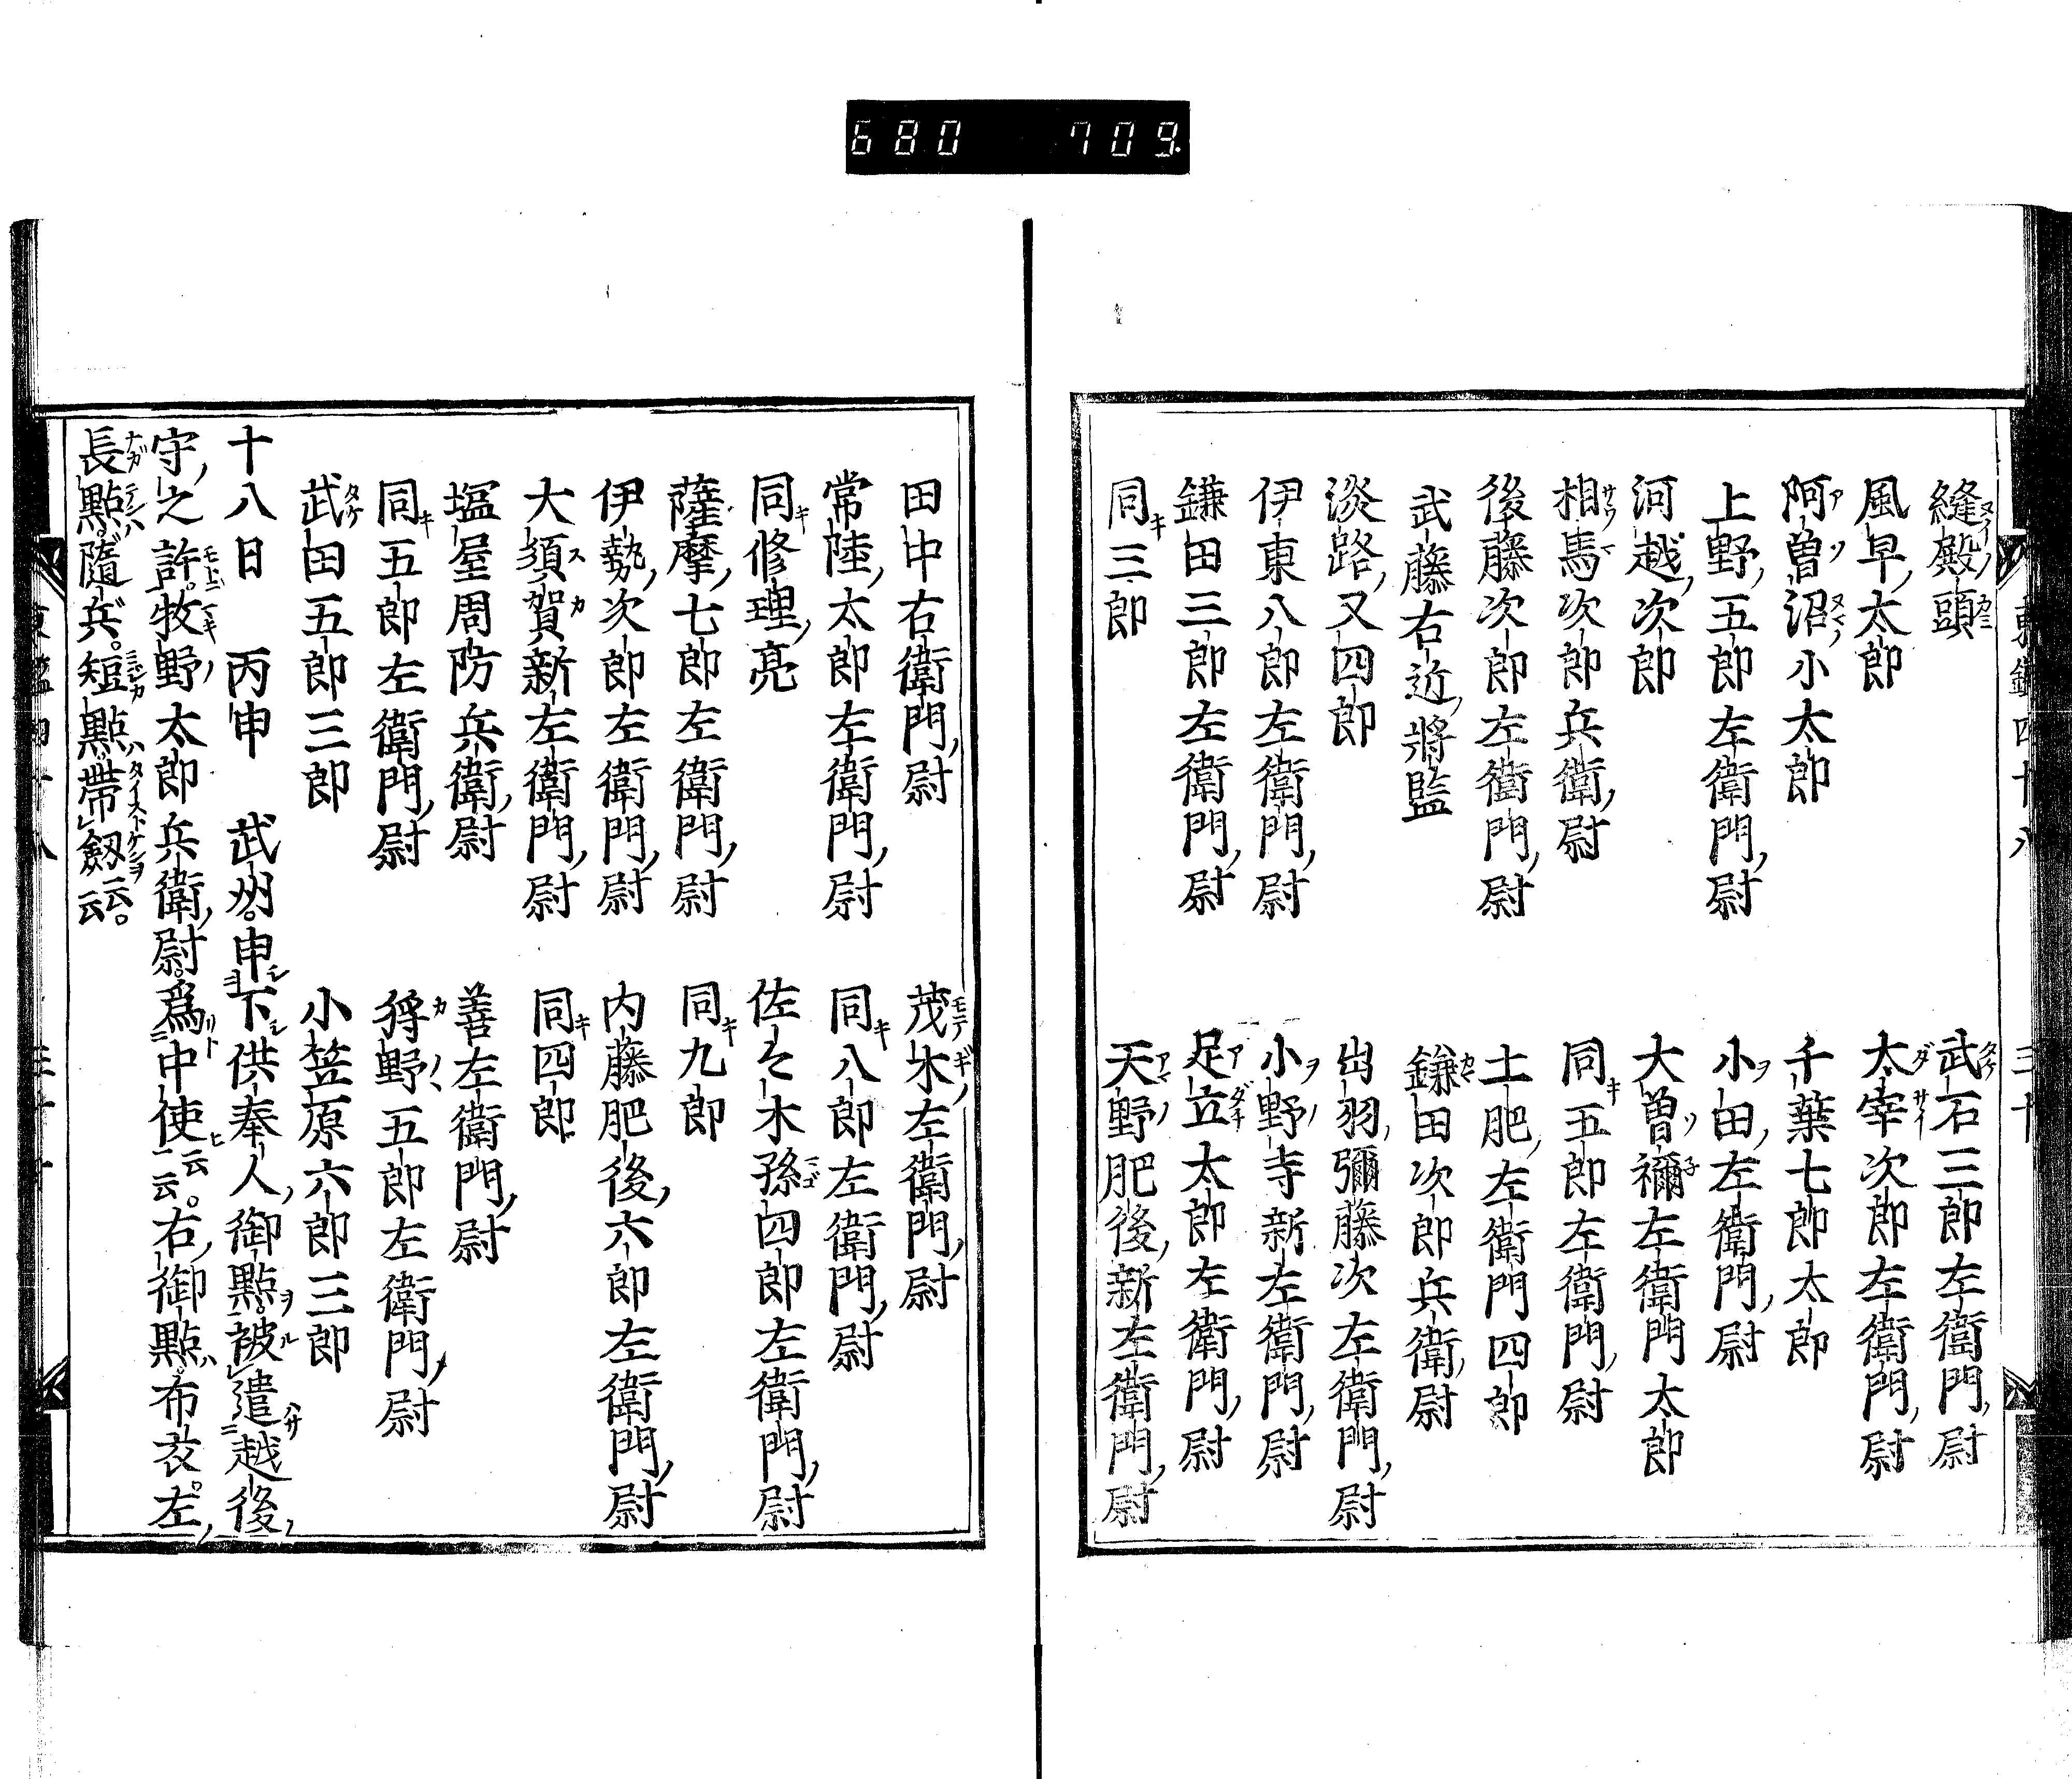 680 709.
縫殿頭 武石三郎左衛門尉
風早太郎 太宰次郎左衛門尉
阿曽沼小太郎 千葉七郎太郎
上野五郎左衛門尉 小田左衛門尉
河越次郎 大曽禰左衛門太郎
相馬次郎兵衛尉 同五郎左衛門尉
後藤次郎左衛門尉 土肥左衛門四郎
武藤右近將監 鎌田次郎兵衛尉
淡路又四郎 出羽彌藤次左衛門尉
伊東八郎左衛門尉 小野寺新左衛門尉
鎌田三郎左衛門尉 足立太郎左衛門尉
同三郎 天野肥後新左衛門尉
田中右衛門尉 茂木左衛門尉
常陸太郎左衛門尉 同八郎左衛門尉
同修理亮 佐々木孫四郎左衛門尉
薩摩七郎左衛門尉 同九郎
伊勢次郎左衛門尉 内藤肥後六郎左衛門尉
大須賀新左衛門尉 同四郎
塩屋周防兵衛尉 善左衛門尉
同五郎左衛門尉 狩野五郎左衛門尉
武田五郎三郎 小笠原六郎三郎
十八日 丙申 武州。申下供奉人御點。被遣越後
守之許。牧野太郎兵衛尉。爲中使云云。右御點布衣。左
長點隨兵。短點帶釼云云。